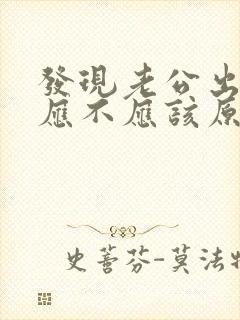 發現老公出
應不應該原
史蒈芬-莫法特